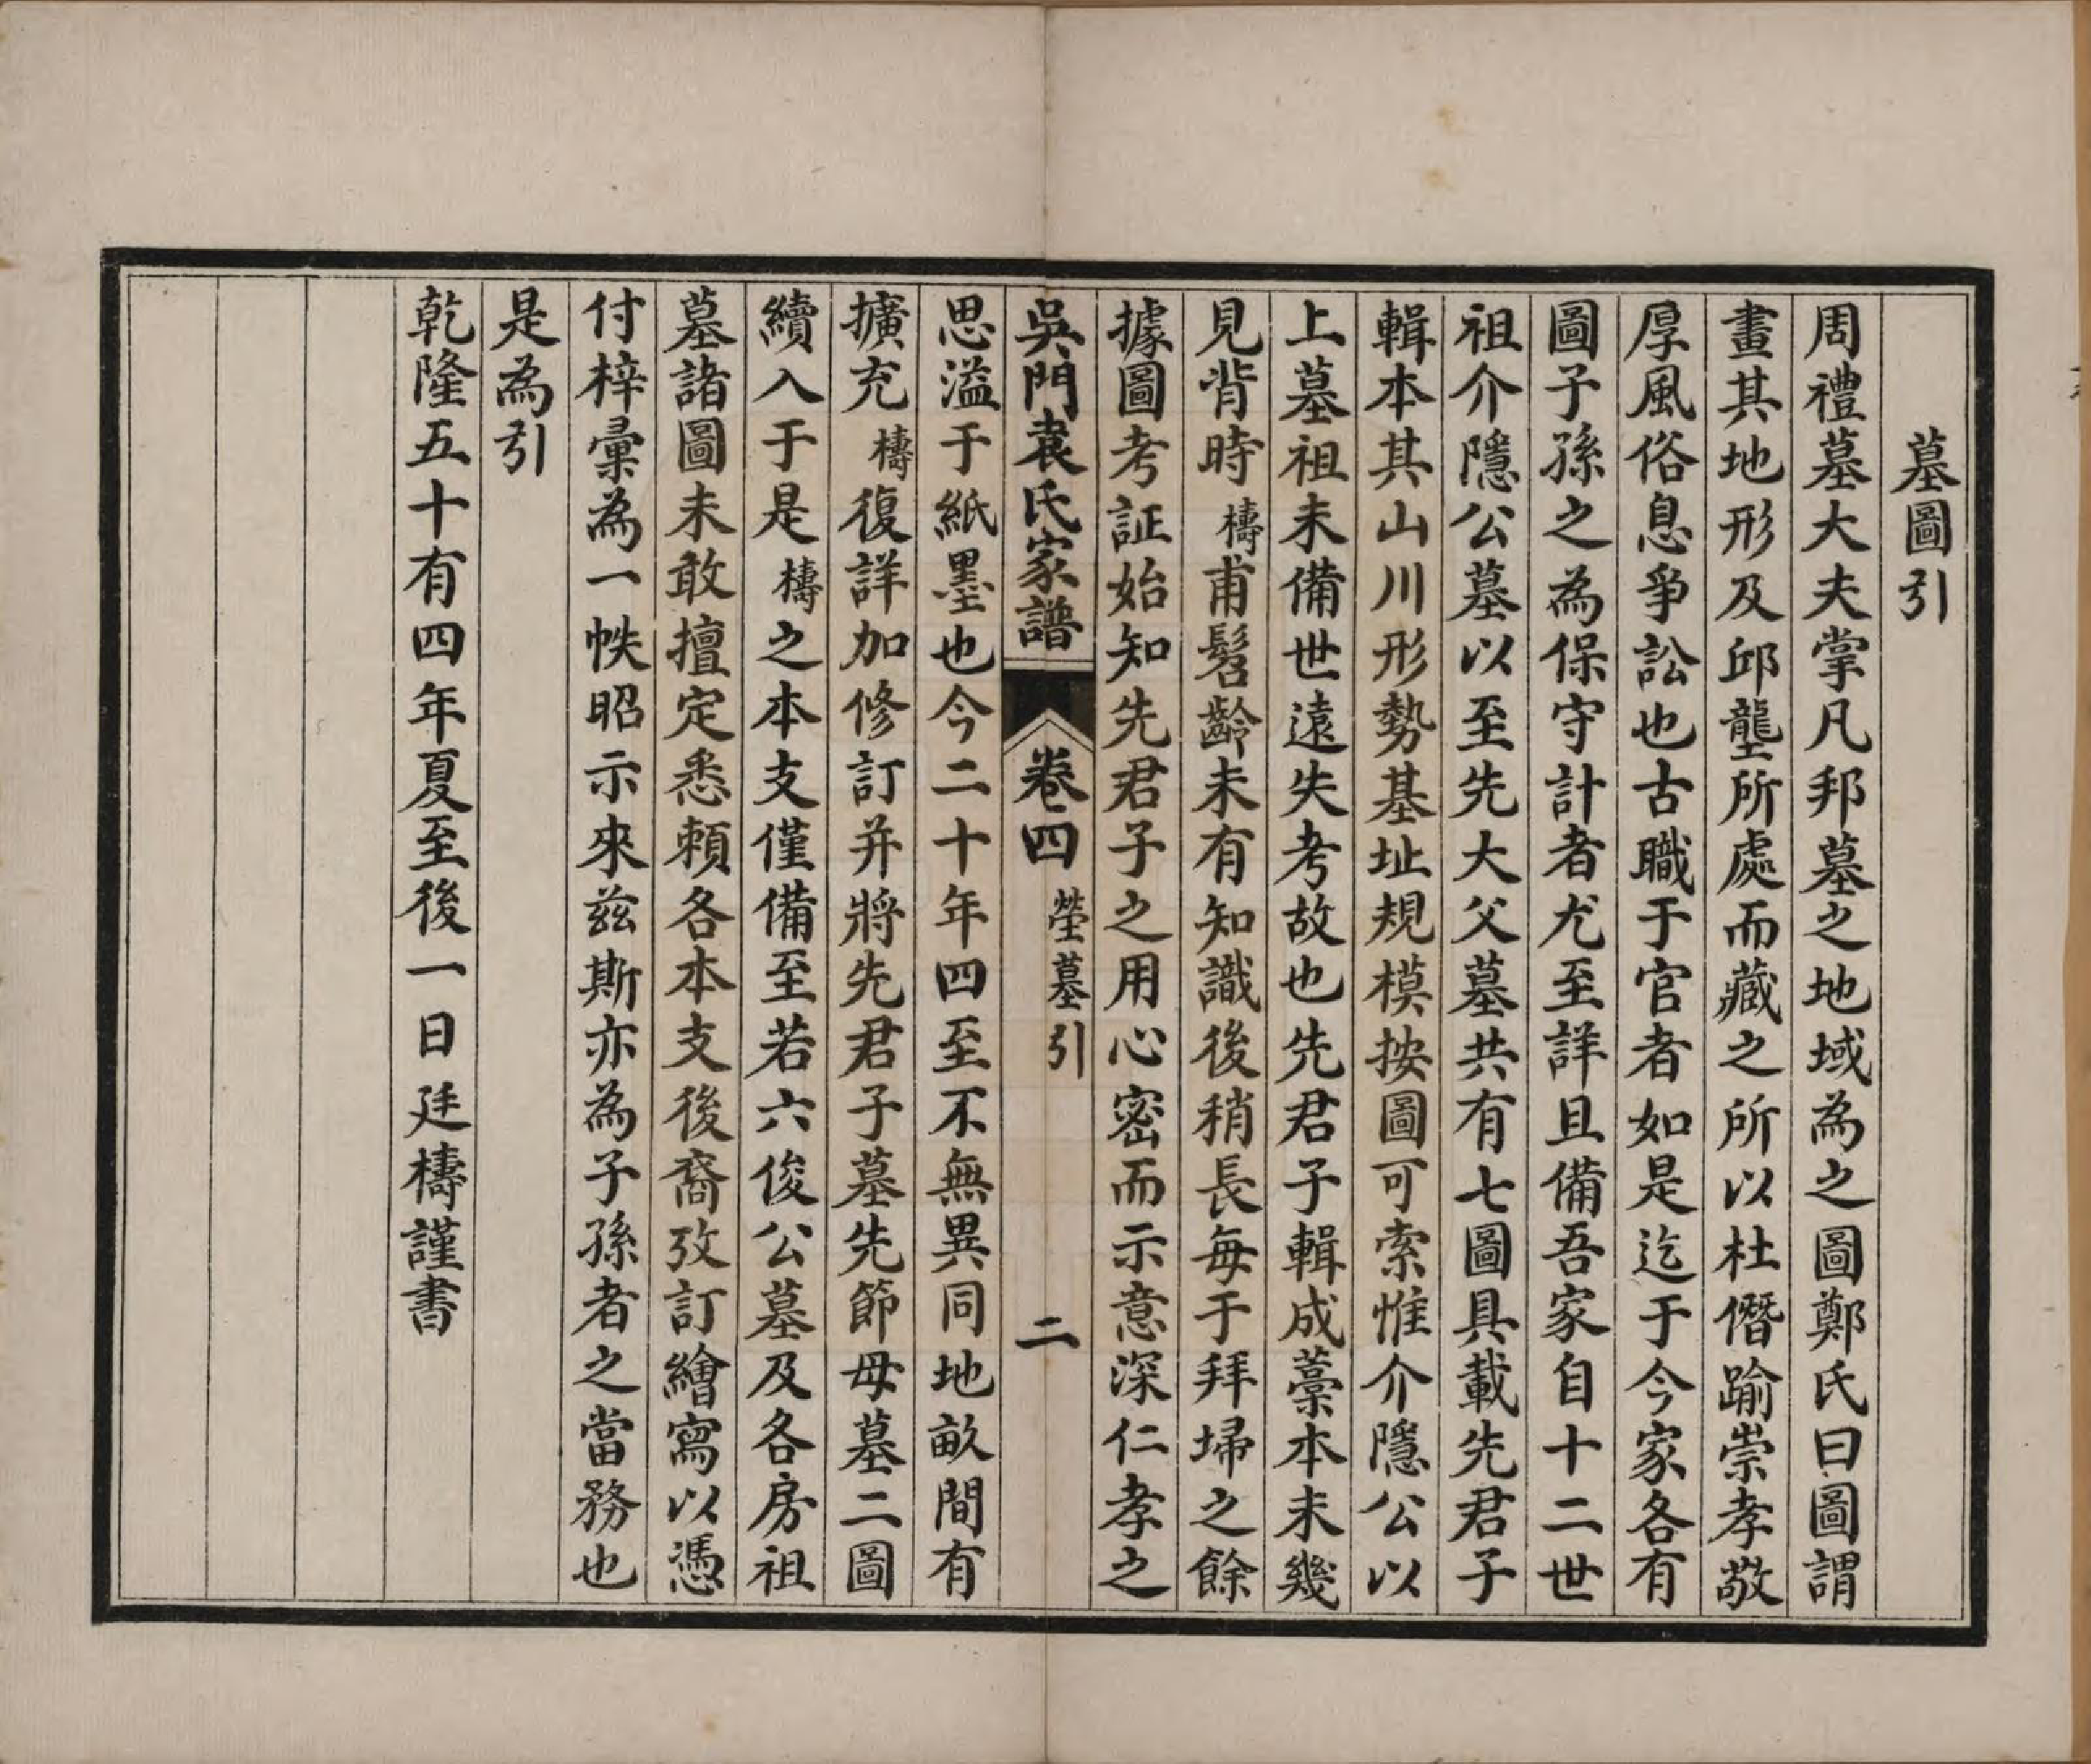 墓圖引
周禮墓大夫掌凡邦墓之地域為之圖鄭氏曰圖謂
畫其地形及邱壟所處而藏之所以杜僭踰崇孝敬
厚風俗息爭訟也古職于官者如是迄于今家各有
圖子孫之為保守計者尤至詳且備吾家自十二世
祖介隱公墓以至先大父墓共有七圖具載先君子
輯本其山川形勢基址規模按圖可索惟介隱公以
上墓祖未備世遠失考故也先君子輯成藁本未幾
見背時檮甫髫齡未有知識後稍長每于拜埽之餘
據圖考証始知先君子之用心密而示意深仁孝之
吳門袁氏家譜 卷四 塋墓引 二
思溢于紙墨也今二十年四至不無異同地畝間有
擴充檮復詳加修訂并將先君子墓先節母墓二圖
續入于是檮之本支僅備至若六俊公墓及各房祖
墓諸圖未敢擅定悉賴各本支後裔攷訂繪寫以憑
付梓彙為一帙昭示來兹斯亦為子孫者之當務也
是為引
乾隆五十有四年夏至後一日廷檮謹書